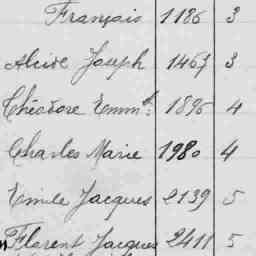 Français 1186 3
Alcide Joseph 1467 3
Théodore Emm.el 1896 4
Charles Marie 1980 4
Emile Jacques 2139 5
Florent Jacques 2411 5